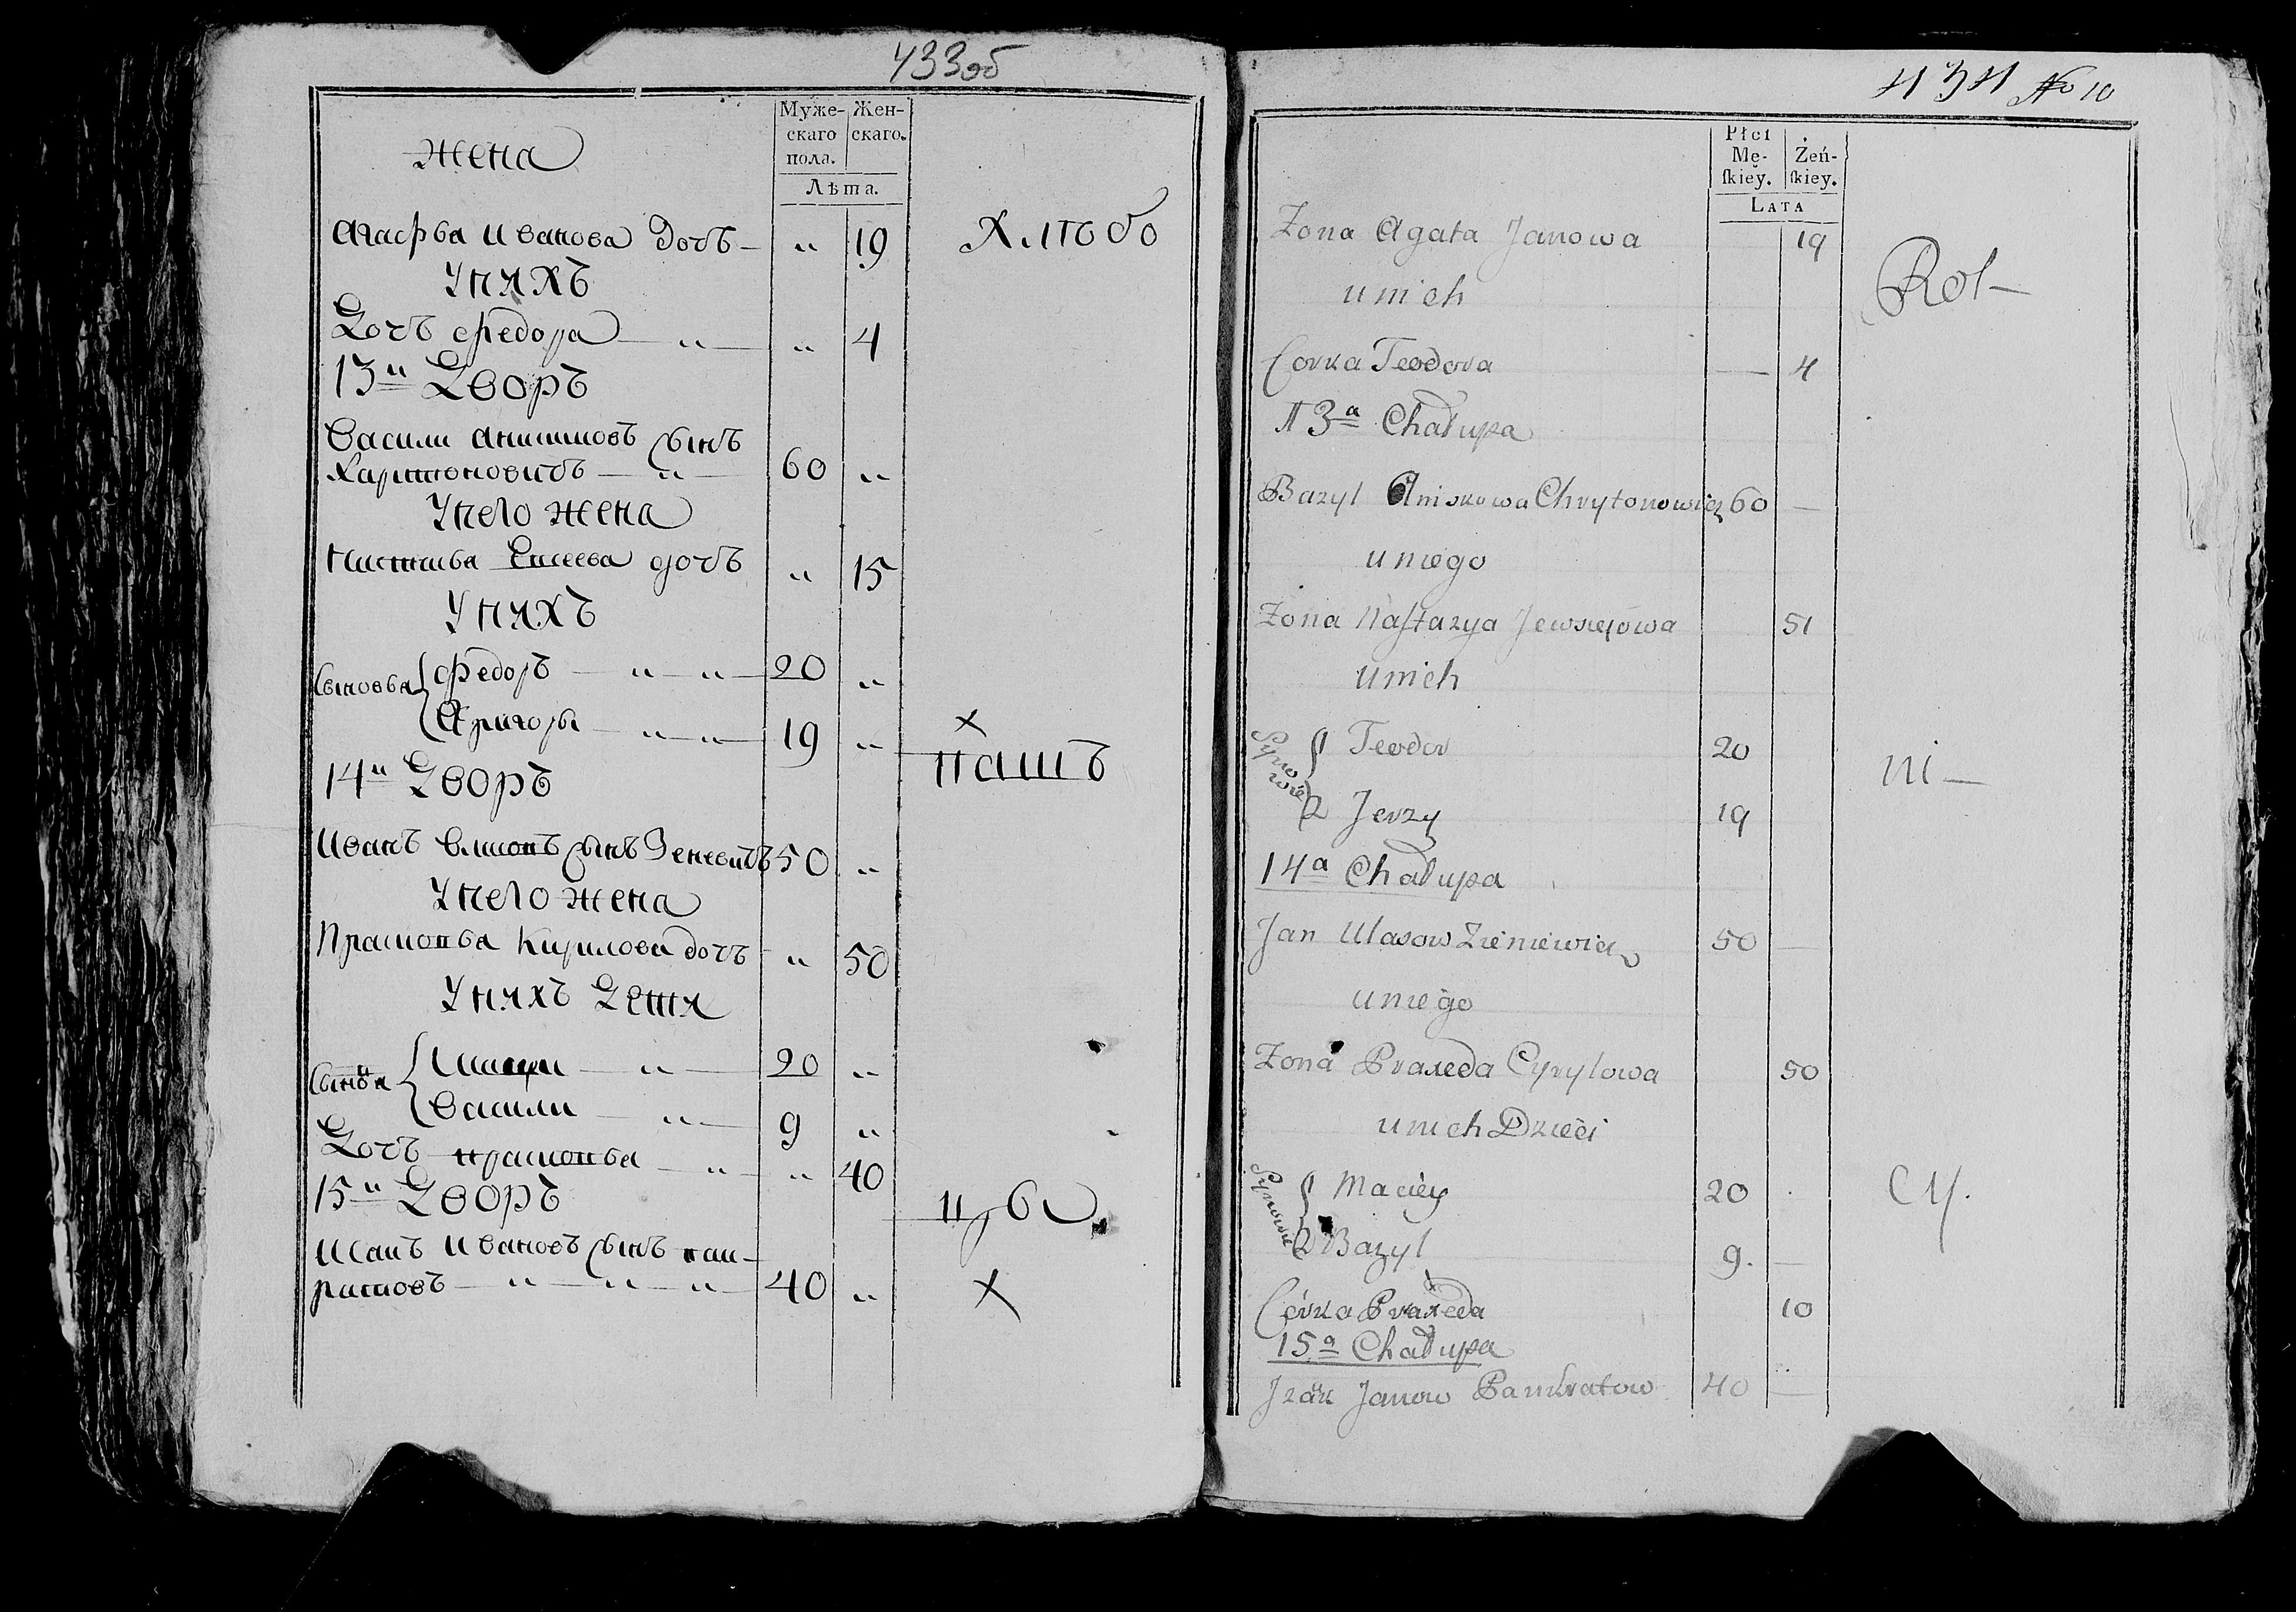 433об
Муже- Жен-
скаго скаго.
пола.
Лѣта.
жена
Агафьа Иванова дочь — „ 19 Хлѣбо
У нихъ
Дочь федора — „ — „ 4
13й Дворъ
Васили Анишковъ сынъ
Харитоновичъ — „ — 60 „
У него жена
Настасьа Евсеева дочь „ 15
У нихъ
Сыновьа { федоръ — „ — „ — 20 „
Григоры — „ — „ — 19 „
х
пашъ
14й Дворъ
Иванъ Власовъ сынъ Зеневичъ 50 „
У него жена
Прасковьа Кирилова дочь „ 50
У нихъ дети
{ — „ — 20 „
Васили — „ — 9 „
Дочь прасковьа — „ — „ 40
15й Дворъ
цы
Исакъ Ивановъ сынъ пан-
ратовъ — „ — „ — „ — 40 „ х
434 No 10
Płci
Mę- Żeń-
skiey. skiey.
LATA
Zona Agata Janowa 19
Rol—
u nich
Corka Teodora — 4
13a Chałupa
Bazyl Aniskowa Chrytonowicz 60 —
u niego
Zona Nastazya Jewsiejowa 51
u nich
Synowie { 1 Teodor 20
ni—
2 Jerzy 19
14a Chałupa
Jan Ułasow Zieniewicz 50 —
u niego
Zona Praxeda Cyrylowa 50
u nich Dzieci
Synowie { 1 Maciey 20
cy.
2 Bazyl 9. —
Córka Praxeda 10
15a Chałupa
Izak Janow Pankratow 40 —